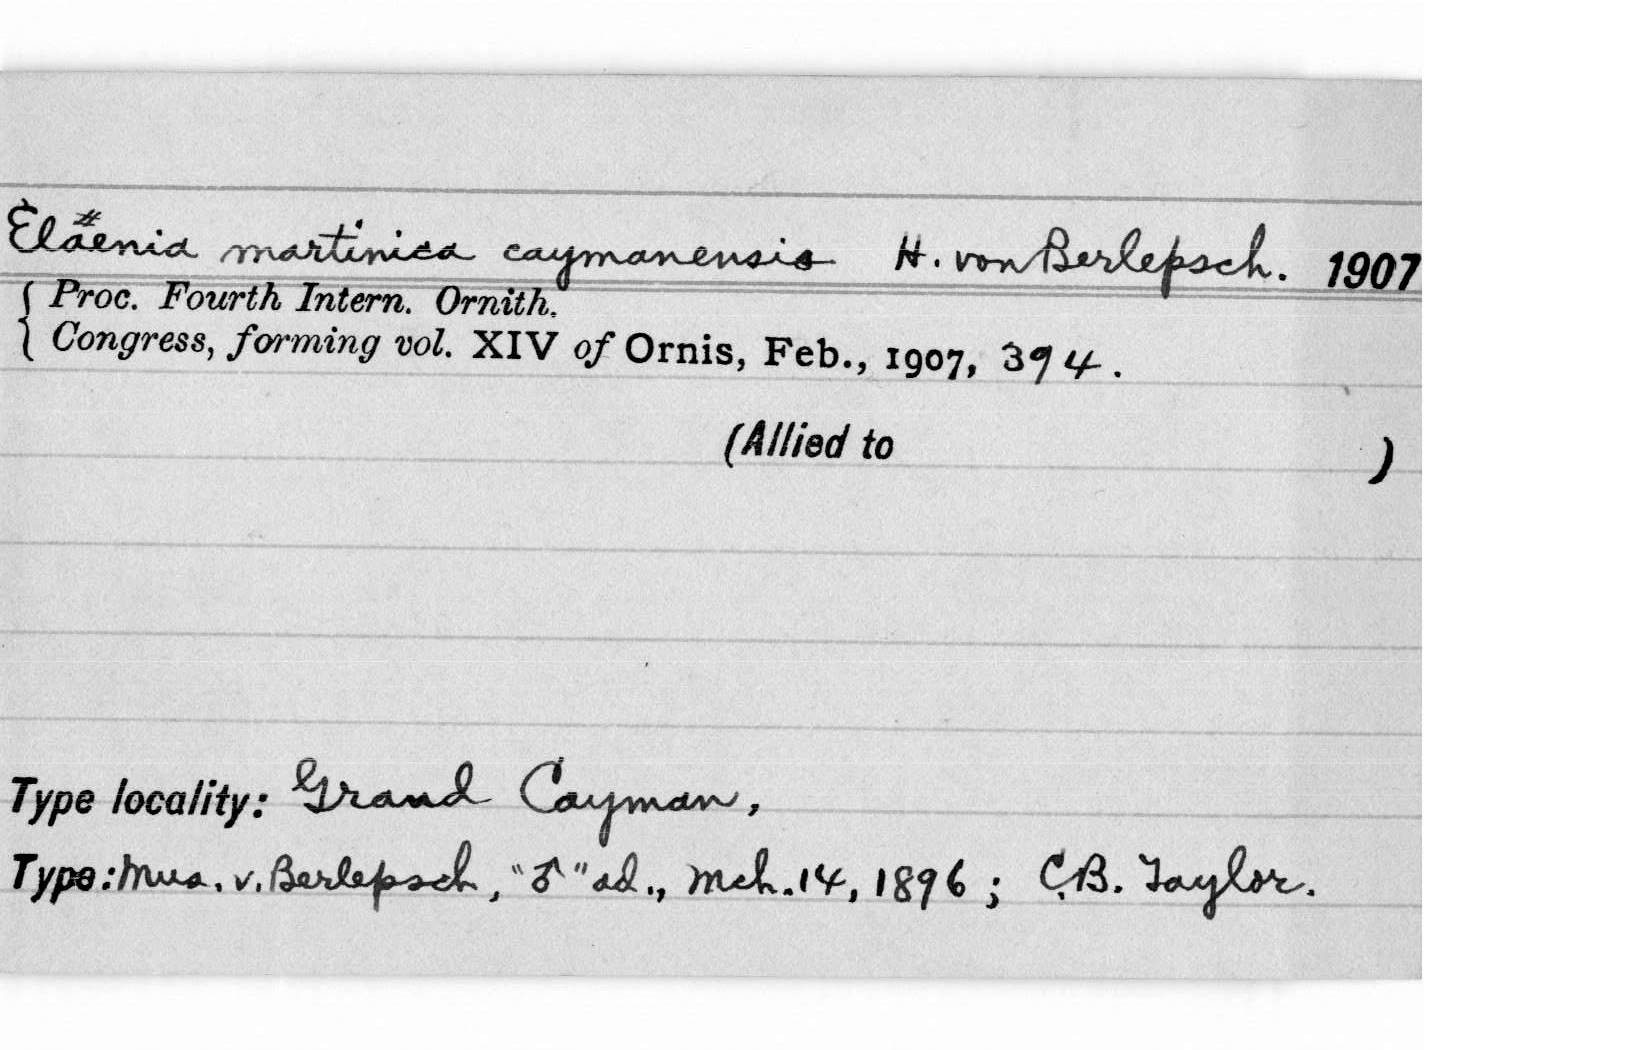 Elaenia martinica caymanensis H. von Berlepsch. 1907
{ Proc. Fourth Intern. Ornith.
{ Congress, forming vol. XIV of Ornis, Feb., 1907, 394.
(Allied to )
Type locality: Grand Cayman,
Type: Mus. v. Berlepsch, "♂" ad., Mch. 14, 1896; C.B. Taylor.